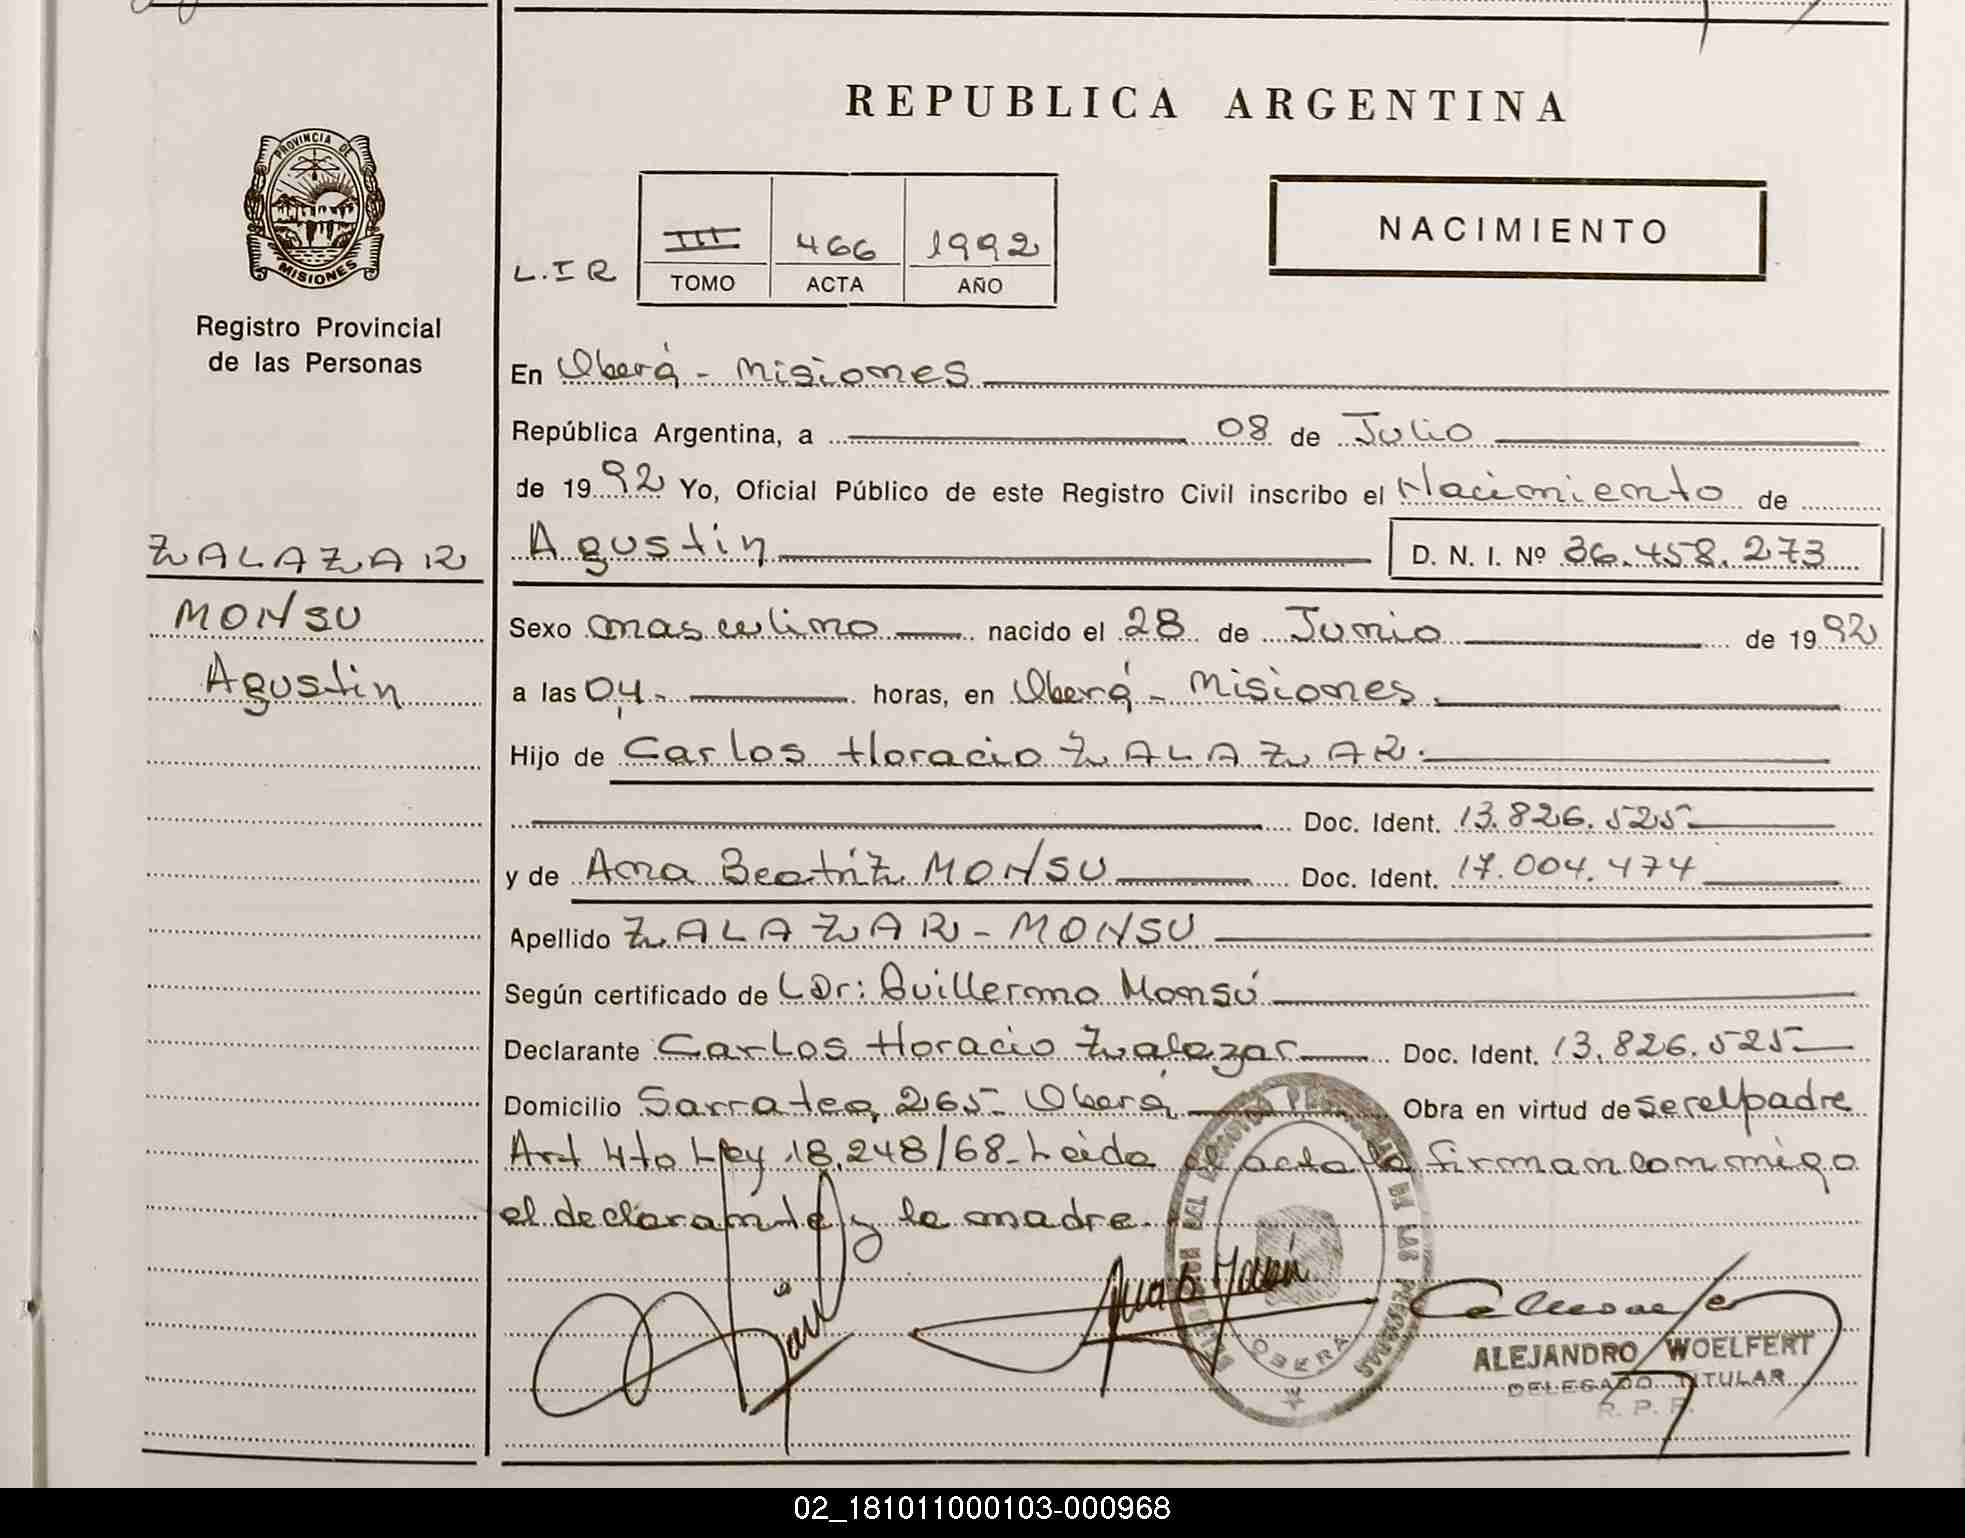 REPUBLICA ARGENTINA
PROVINCIA DE
MISIONES
Registro Provincial
de las Personas
L.I R
III 466 1992
TOMO ACTA AÑO
NACIMIENTO
En Oberá - Misiones
República Argentina, a 08 de Julio
de 1992 Yo, Oficial Público de este Registro Civil inscribo el Nacimiento de
ZALAZAR
Agustin D. N. I. Nº 36.458.273
MONSU
Sexo masculino nacido el 28 de Junio de 1992
Agustin
a las 04.- horas, en Oberá - Misiones.
Hijo de Carlos Horacio ZALAZAR.
Doc. Ident. 13.826.525
y de Ana Beatríz MONSU Doc. Ident. 17.004.474
Apellido ZALAZAR - MONSU
Según certificado de Dr: Guillermo Monsú
Declarante Carlos Horacio Zalazar Doc. Ident. 13.826.525
Domicilio Sarratea 265- Oberá Obra en virtud de ser el padre
Art 4to Ley 18.248/68- Leida el acta la firman conmigo
el declarante y la madre.
OBERA
ALEJANDRO WOELFERT
DELEGADO TITULAR
R. P. P.
02_181011000103-000968